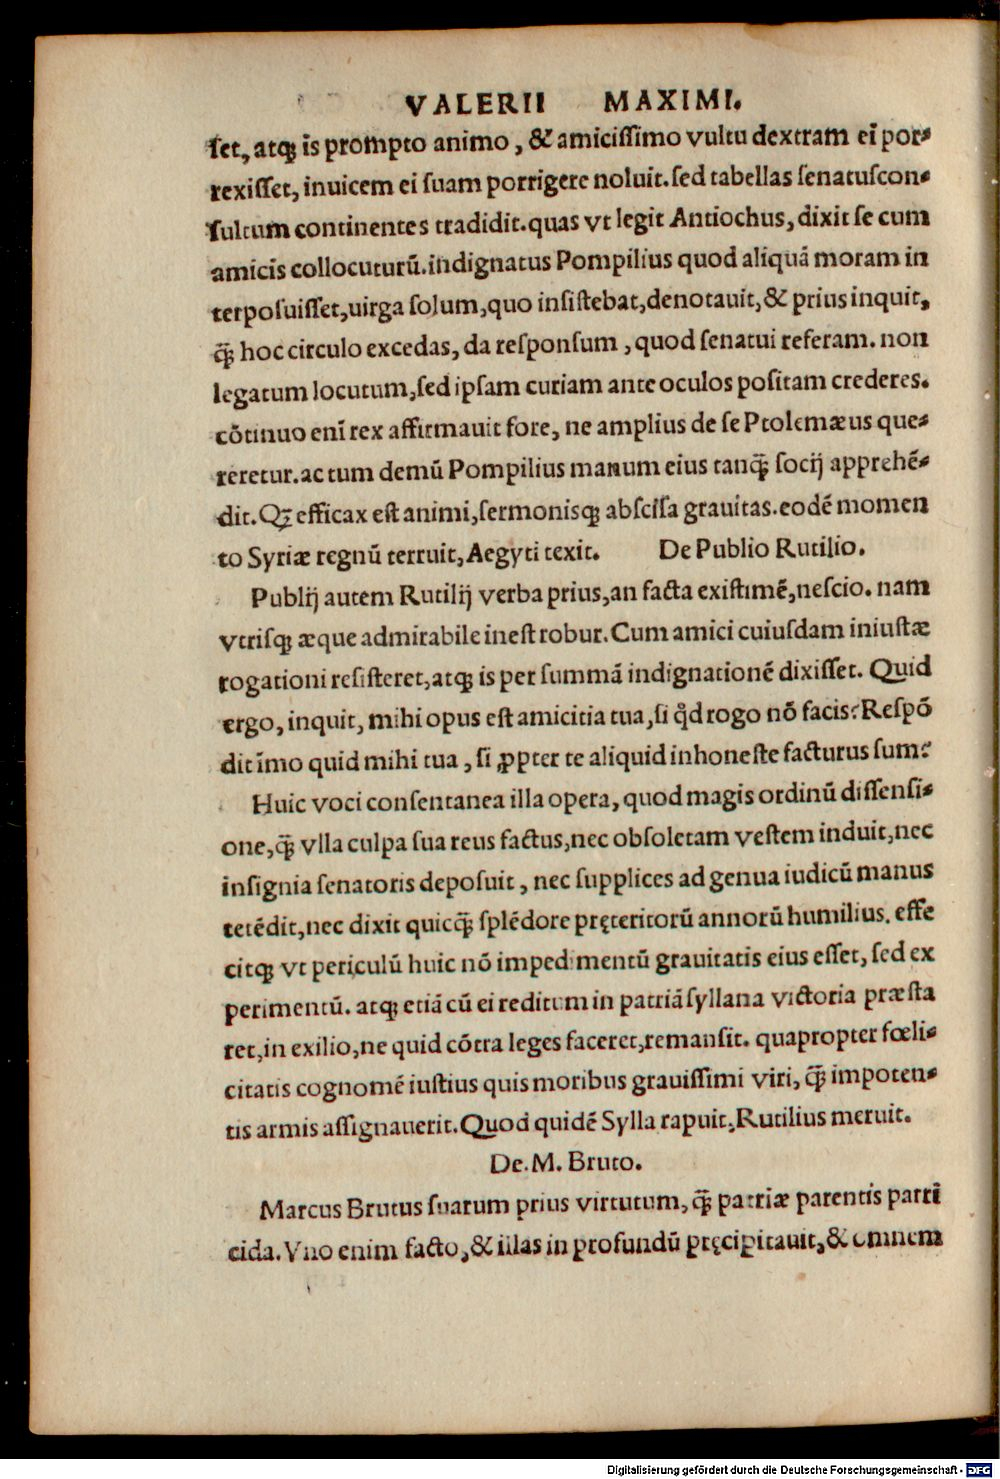 VALERII MAXIMI.
ſet, atqꝫ is prompto animo, & amiciſſimo vultu dextram ei por⸗
rexiſſet, inuicem ei ſuam porrigere noluit. ſed tabellas ſenatuſcon⸗
ſultum continentes tradidit. quas vt legit Antiochus, dixit ſe cum
amicis collocuturū. indignatus Pompilius quod aliquā moram in
terpoſuiſſet, uirga ſolum, quo inſiſtebat, denotauit, & prius inquit,
q̄ꝫ hoc circulo excedas, da reſponſum, quod ſenatui referam. non
legatum locutum, ſed ipſam curiam ante oculos poſitam crederes.
cōtinuo enī rex affirmauit fore, ne amplius de ſe Ptolemæus que⸗
reretur. ac tum demū Pompilius manum eius tanq̄ꝫ ſocij apprehē⸗
dit. Qꝫ efficax eſt animi, ſermonisqꝫ abſciſa grauitas. eodē momen
to Syriæ regnū terruit, Aegyti texit. De Publio Rutilio.
Publij autem Rutilij verba prius, an facta exiſtimē, neſcio. nam
vtriſqꝫ æque admirabile ineſt robur. Cum amici cuiuſdam iniuſtæ
rogationi reſiſteret, atqꝫ is per ſummā indignationē dixiſſet. Quid
ergo, inquit, mihi opus eſt amicitia tua, ſi q̊d rogo nō facis? Reſpō
dit īmo quid mihi tua, ſi ꝓpter te aliquid inhoneſte facturus ſum?
Huic voci conſentanea illa opera, quod magis ordinū diſſenſi⸗
one, q̄ꝫ vlla culpa ſua reus factus, nec obſoletam veſtem induit, nec
inſignia ſenatoris depoſuit, nec ſupplices ad genua iudicū manus
tetēdit, nec dixit quicq̄ꝫ ſplēdore pręteritorū annorū humilius. effe
citqꝫ vt periculū huic nō impedimentū grauitatis eius eſſet, ſed ex
perimentū. atqꝫ etiā cū ei reditum in patriā ſyllana victoria præſta
ret, in exilio, ne quid cōtra leges faceret, remanſit. quapropter fœli⸗
citatis cognomē iuſtius quis moribus grauiſſimi viri, q̄ꝫ impoten⸗
tis armis aſſignauerit. Quod quidē Sylla rapuit, Rutilius meruit.
De. M. Bruto.
Marcus Brutus ſuarum prius virtutum, q̄ꝫ patriæ parentis parri
cida. Vno enim facto, & illas in profundū pręcipitauit, & omnem
Digitalisierung gefördert durch die Deutsche Forschungsgemeinschaft - DFG